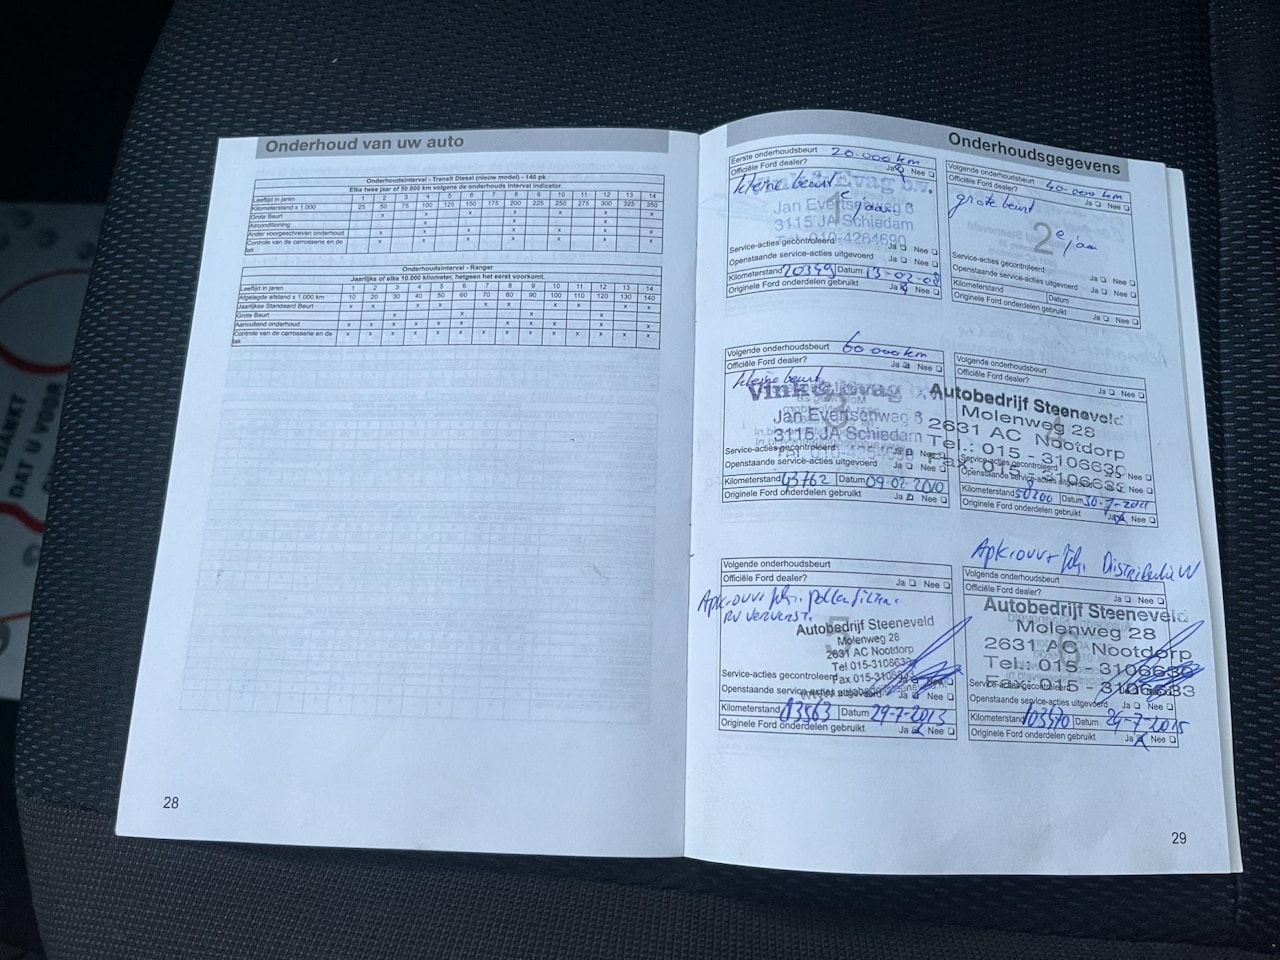 Onderhoud van uw auto
Onderhoudsinterval - Transit Diesel (nieuw model) - 140 pk
Elke twee jaar of 50.000 km volgens de onderhouds interval indicator.
Leeftijd in jaren 1 2 3 4 5 6 7 8 9 10 11 12 13 14
Kilometerstand x 1.000 25 50 75 100 125 150 175 200 225 250 275 300 325 350
Grote Beurt x x x x x x x
Airconditioning
Ander voorgeschreven onderhoud
Controle van de carrosserie en de lak
Onderhoudsinterval - Ranger
Jaarlijks of elke 10.000 kilometer, hetgeen het eerst voorkomt.
Leeftijd in jaren 1 2 3 4 5 6 7 8 9 10 11 12 13 14
Afgelegde afstand x 1.000 km 10 20 30 40 50 60 70 80 90 100 110 120 130 140
Jaarlijkse Standaard Beurt
Grote Beurt x x x x
Aanvullend onderhoud
Controle van de carrosserie en de lak x x x x x x x x x x x x x x
28
Onderhoudsgegevens
Eerste onderhoudsbeurt 20.000 km
Officiële Ford dealer? Ja Nee
kleine beurt
Jan Evertsenweg 6
3115 JA Schiedam
010-4264690
1
Service-acties gecontroleerd Ja Nee
Openstaande service-acties uitgevoerd Ja Nee
Kilometerstand 20349 Datum 13-02-08
Originele Ford onderdelen gebruikt Ja Nee
Volgende onderhoudsbeurt 40.000 km
Officiële Ford dealer? Ja Nee
grote beurt
2e jaar
Service-acties gecontroleerd Ja Nee
Openstaande service-acties uitgevoerd Ja Nee
Kilometerstand Datum
Originele Ford onderdelen gebruikt Ja Nee
Volgende onderhoudsbeurt 60.000 km
Officiële Ford dealer? Ja Nee
kleine beurt
Jan Evertsenweg 6
3115 JA Schiedam
Service-acties gecontroleerd Ja Nee
Openstaande service-acties uitgevoerd Ja Nee
Kilometerstand 43762 Datum 09-02-2010
Originele Ford onderdelen gebruikt Ja Nee
Volgende onderhoudsbeurt
Officiële Ford dealer? Ja Nee
Autobedrijf Steeneveld
Molenweg 28
2631 AC Nootdorp
Tel.: 015 - 3106630
Fax: 015 - 3106633
Service-acties gecontroleerd Ja Nee
Openstaande service-acties uitgevoerd Ja Nee
Kilometerstand 58200 Datum 30-7-2011
Originele Ford onderdelen gebruikt Ja Nee
Volgende onderhoudsbeurt
Officiële Ford dealer? Ja Nee
pollenfilter.
RV ververst.
Autobedrijf Steeneveld
Molenweg 28
2631 AC Nootdorp
5
Service-acties gecontroleerd
Openstaande service-acties uitgevoerd Ja Nee
Kilometerstand 83563 Datum 29-7-2013
Originele Ford onderdelen gebruikt Ja Nee
Distributie
Volgende onderhoudsbeurt
Officiële Ford dealer? Ja Nee
Autobedrijf Steeneveld
Molenweg 28
2631 AC Nootdorp
Tel.: 015 - 3106630
Fax: 015 - 3106633
Service-acties gecontroleerd
Openstaande service-acties uitgevoerd Ja Nee
Kilometerstand 103470 Datum 29-7-2015
Originele Ford onderdelen gebruikt Ja Nee
29
DAT U VOOR